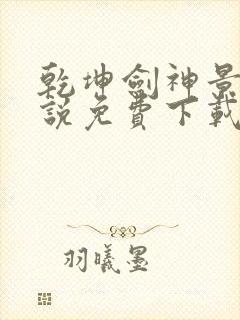 乾坤劍神景
說免費下載
羽曦墨